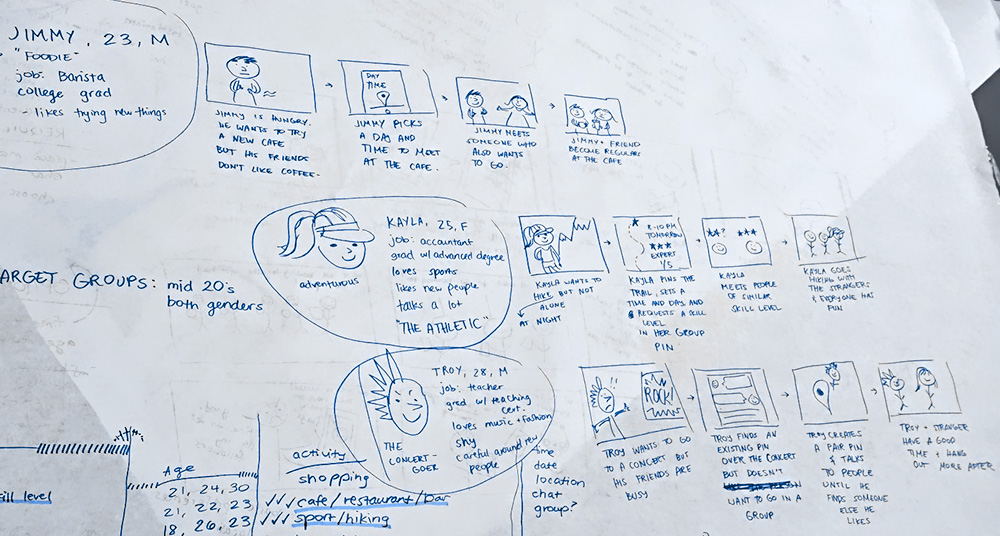 JIMMY, 23, M
"FOODIE"
job: Barista
college grad
- likes trying new things
JIMMY IS HUNGRY.
HE WANTS TO TRY
A NEW CAFE
BUT HIS FRIENDS
DON'T LIKE COFFEE.
DAY
TIME
JIMMY PICKS
A DAY AND
TIME TO MEET
AT THE CAFE.
JIMMY MEETS
SOMEONE WHO
ALSO WANTS
TO GO.
JIMMY + FRIEND
BECOME REGULARS
AT THE CAFE
ARGET GROUPS: mid 20's
both genders
adventurous
KAYLA, 25, F
job: accountant
grad w/ advanced degree
loves sports
likes new people
talks a lot
"THE ATHLETIC"
KAYLA WANTS TO
HIKE BUT NOT
ALONE
AT NIGHT
8-10 PM
TOMORROW
EXPERT
1/5
KAYLA PINS THE
TRAIL, SETS A
TIME AND DAYS AND
REQUESTS A SKILL
LEVEL
IN HER GROUP
PIN
KAYLA
MEETS PEOPLE
OF SIMILAR
SKILL LEVEL
KAYLA GOES
HIKING WITH
THE STRANGERS
& EVERYONE HAS
FUN
THE
CONCERT-
GOER
TROY, 28, M
job: teacher
grad w/ teaching
cert.
loves music + fashion
shy
careful around new
people
ROCK!
TROY WANTS TO GO
TO A CONCERT BUT
HIS FRIENDS ARE
BUSY
TROY FINDS AN
EXISTING PIN
OVER THE CONCERT
BUT DOESN'T
WANT TO GO IN A
GROUP
TROY CREATES
A PAIR PIN
& TALKS
TO PEOPLE
UNTIL HE
FINDS SOMEONE
ELSE HE
LIKES
TROY + STRANGER
HAVE A GOOD
TIME & HANG
OUT MORE AFTER
ill level
Age
21, 24, 30
21, 22, 23
18, 26, 23
activity
shopping
cafe/restaurant/bar
sport/hiking
time
date
location
chat
group?